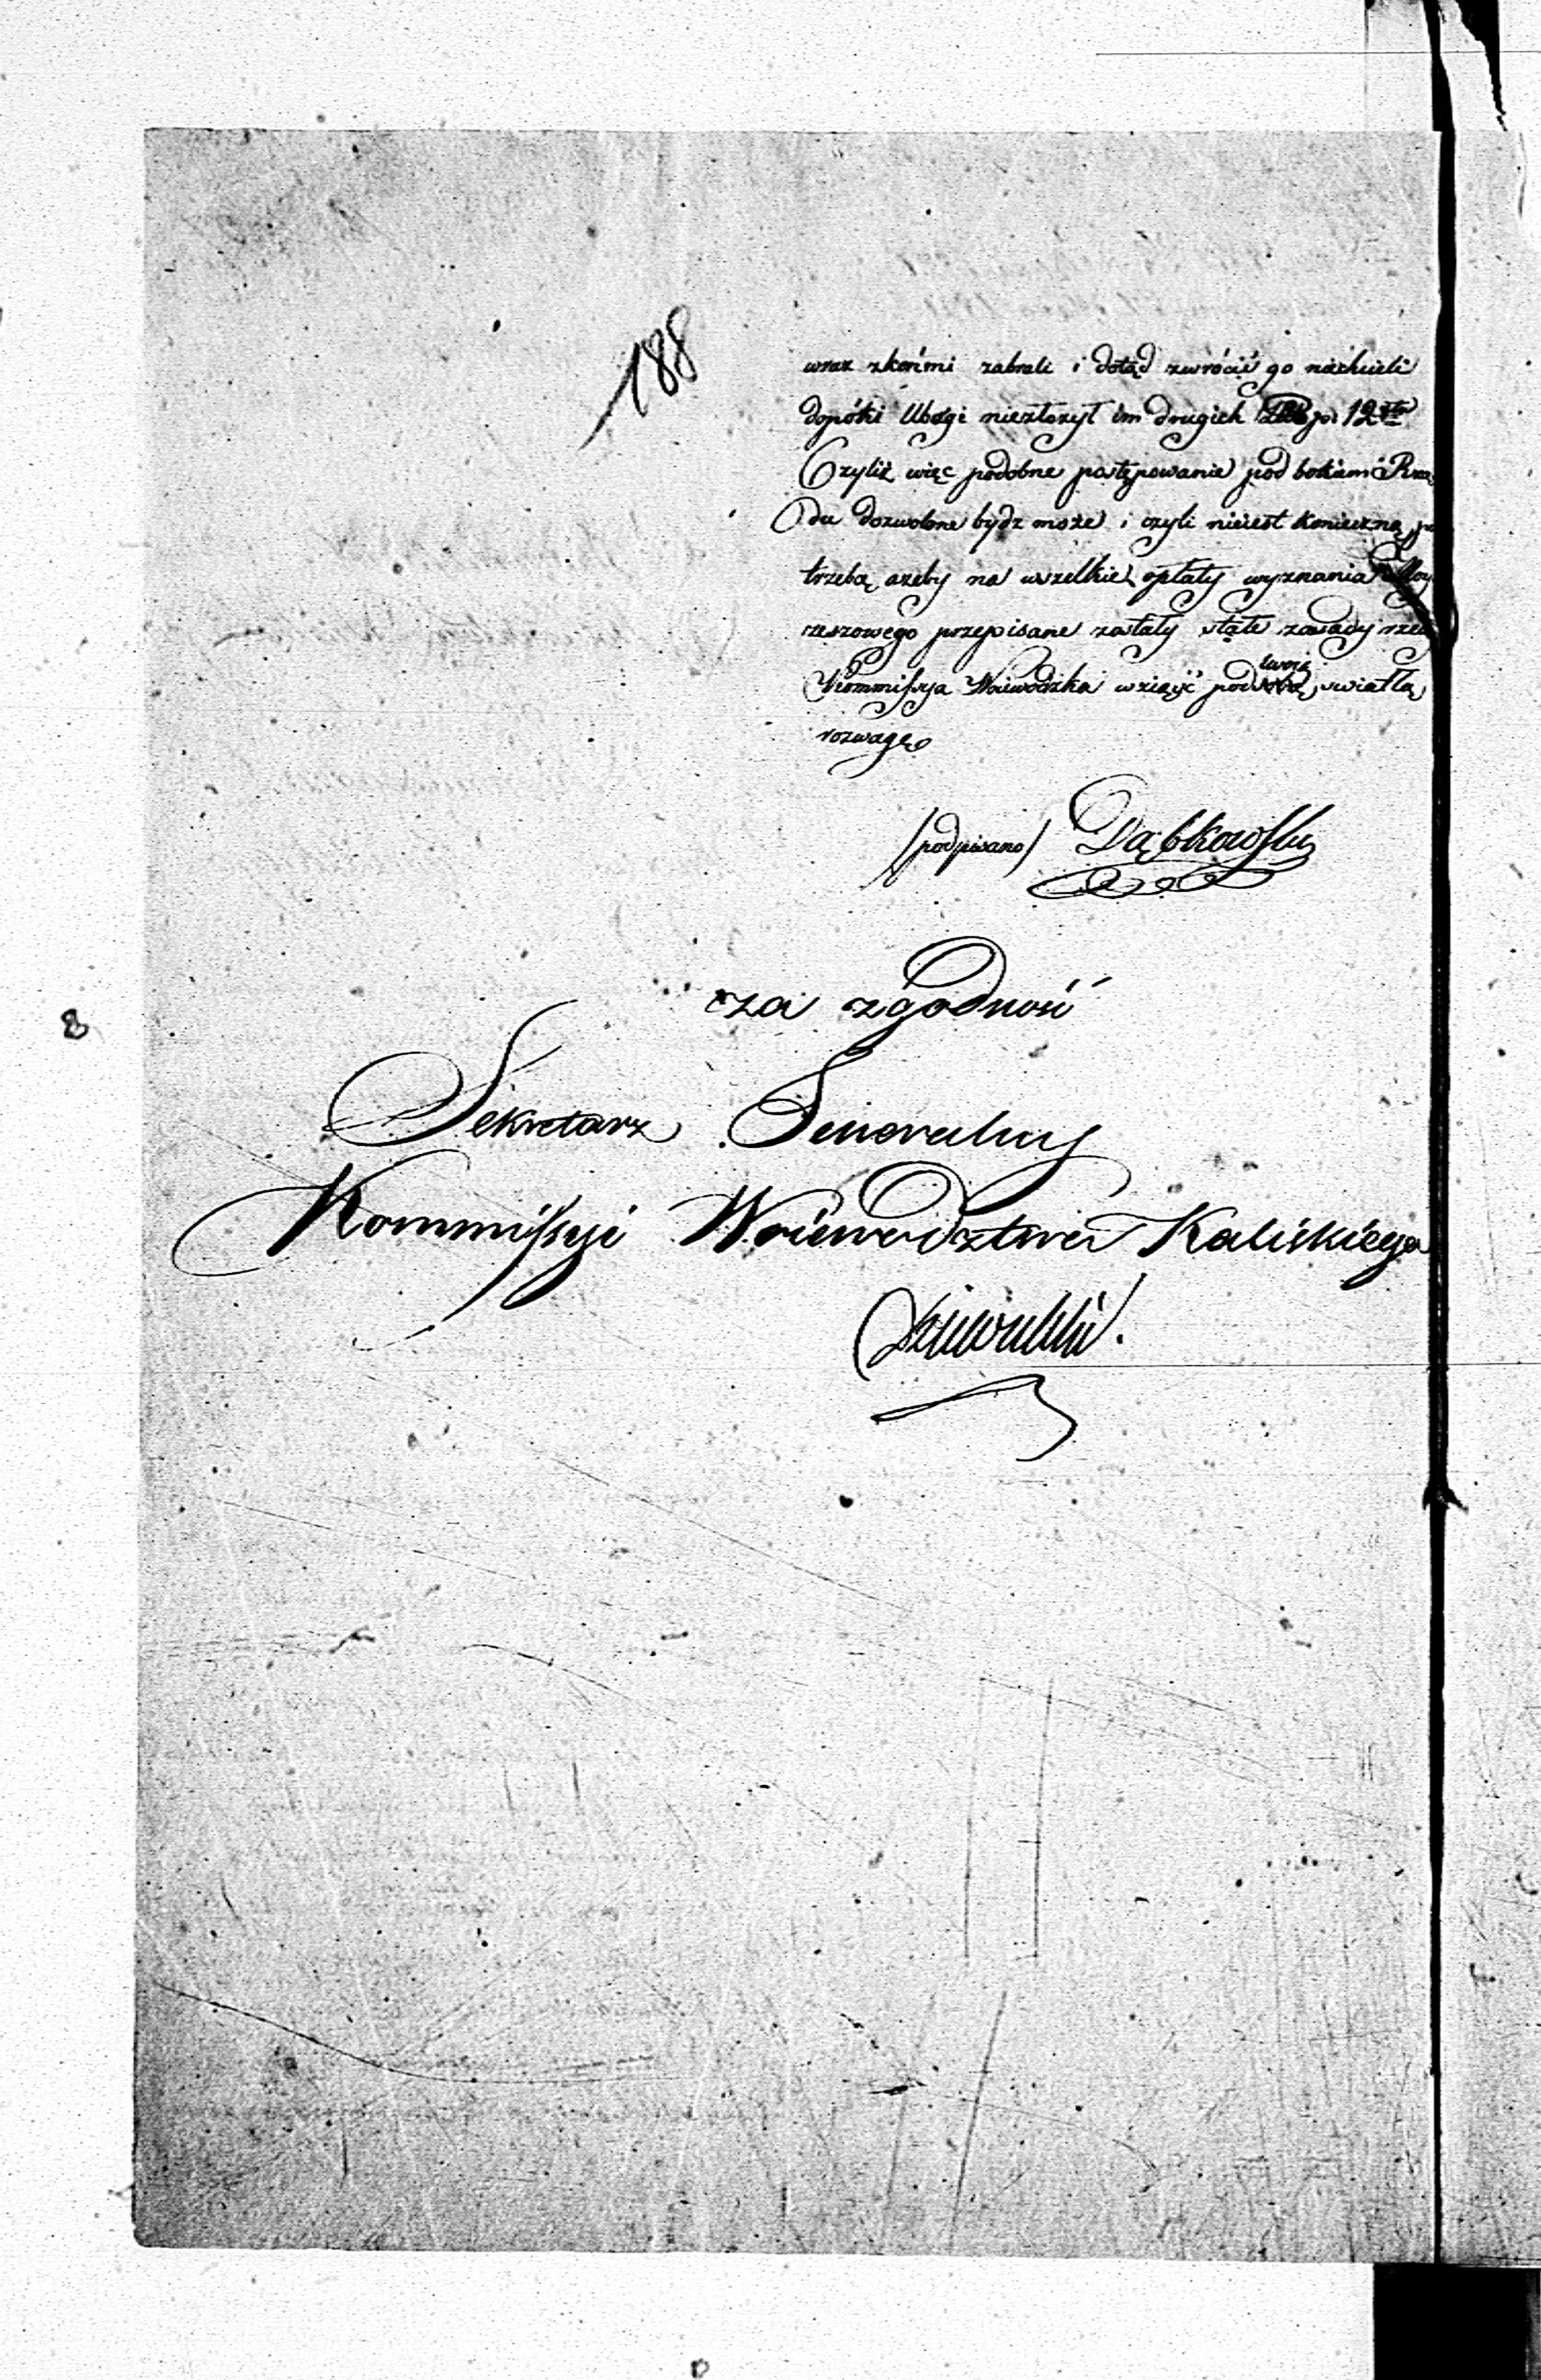 188
wraz zkońmi zabrali i dotąd zwrócić go niechcieli
dopóki Ubogi niezłożył im drugich 12
Czyliż więc podobne postępowanie pod bokiem Rzą
du dozwolone bydz może i czyli nieiest konieczną po
trzebą ażeby na wszelkie opłaty wyznania Moy
rzeszowego przepisane zostały stałe zasady
Kommissya Woiewódzka wziąść pod swoię swiatłą
rozwagę
/podpisano/ Dąbkowski
za zgodność
Sekretarz Generalny
Kommissyi Woiewództwa Kaliskiego
8